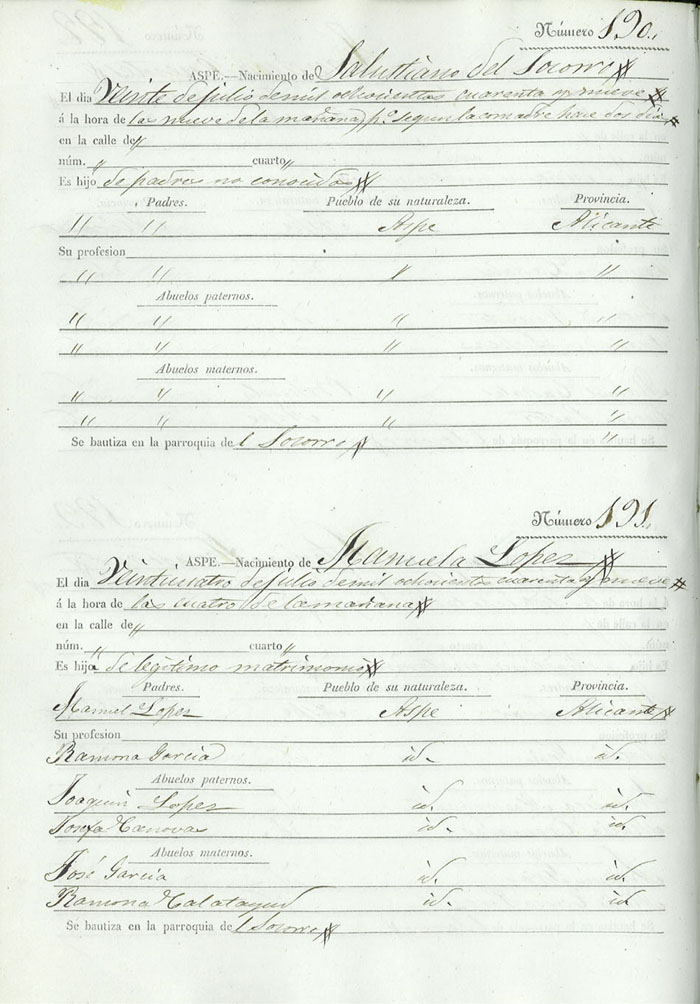 Número 190.
ASPE.—Nacimiento de Salustiano del Socorro
El dia Veinte de julio de mil ochocientos cuarenta y nueve
á la hora de las nueve de la mañana, p.º segun la comadre hace dos dias
en la calle de "
núm. " cuarto "
Es hijo de padres no conocidos
Padres. Pueblo de su naturaleza. Provincia.
" " Aspe Alicante
Su profesion
" " " "
Abuelos paternos.
" " " "
" " " "
Abuelos maternos.
" " " "
" " " "
Se bautiza en la parroquia del Socorro
Número 191.
ASPE.—Nacimiento de Manuela Lopez
El dia Veinticuatro de julio de mil ochocientos cuarenta y nueve
á la hora de las cuatro de la mañana
en la calle de "
núm. " cuarto "
Es hija de legitimo matrimonio
Padres. Pueblo de su naturaleza. Provincia.
Manuel Lopez Aspe Alicante
Su profesion
Ramona Garcia id. id.
Abuelos paternos.
Joaquin Lopez id. id.
Josefa Canova id. id.
Abuelos maternos.
José Garcia id. id.
Ramona Calatayud id. id.
Se bautiza en la parroquia del Socorro